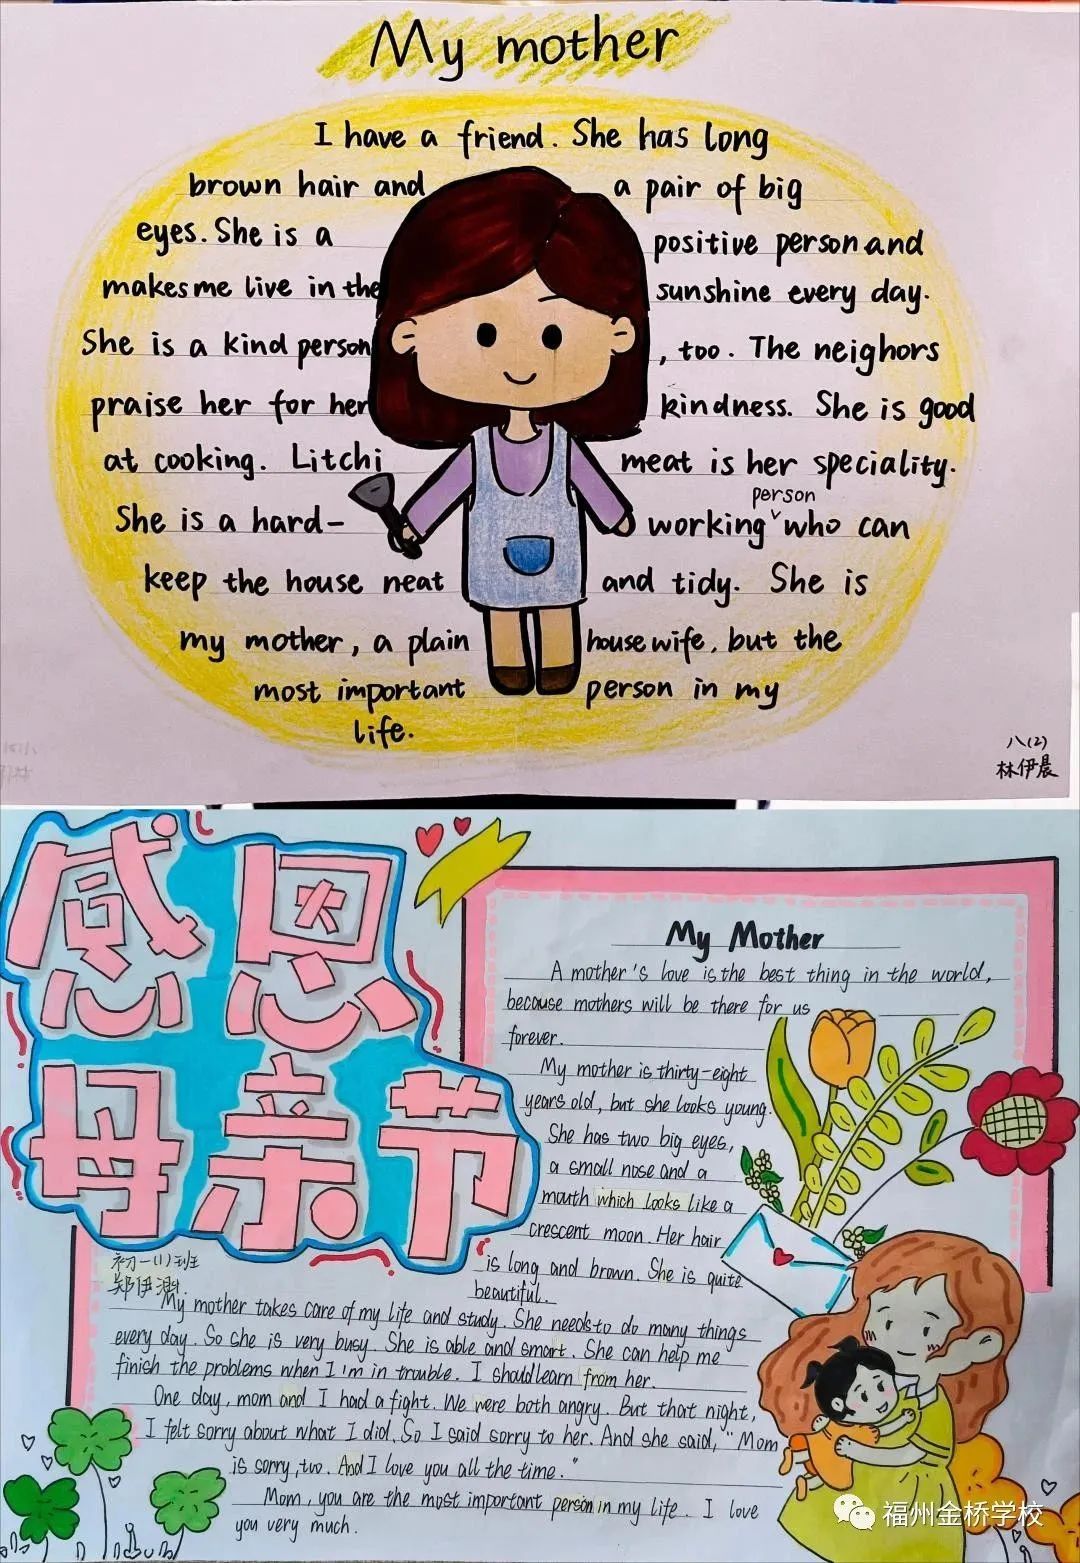 My mother
I have a friend. She has long
brown hair and a pair of big
eyes. She is a positive person and
makes me live in the sunshine every day.
She is a kind person, too. The neighors
praise her for her kindness. She is good
at cooking. Litchi meat is her speciality.
person
She is a hard-working who can
keep the house neat and tidy. She is
my mother, a plain housewife, but the
most important person in my
life.
八(2)
林伊晨
感恩
母亲节
My Mother
A mother's love is the best thing in the world,
because mothers will be there for us
forever.
My mother is thirty-eight
years old, but she looks young.
She has two big eyes,
a small nose and a
mouth which looks like a
crescent moon. Her hair
is long and brown. She is quite
beautiful.
初一(1)班
郑伊
My mother takes care of my life and study. She needs to do many things
every day. So she is very busy. She is able and smart. She can help me
finish the problems when I'm in trouble. I should learn from her.
One day, mom and I had a fight. We were both angry. But that night,
I felt sorry about what I did. So I said sorry to her. And she said, "Mom
is sorry, too. And I love you all the time."
Mom, you are the most important person in my life. I love
you very much.
福州金桥学校